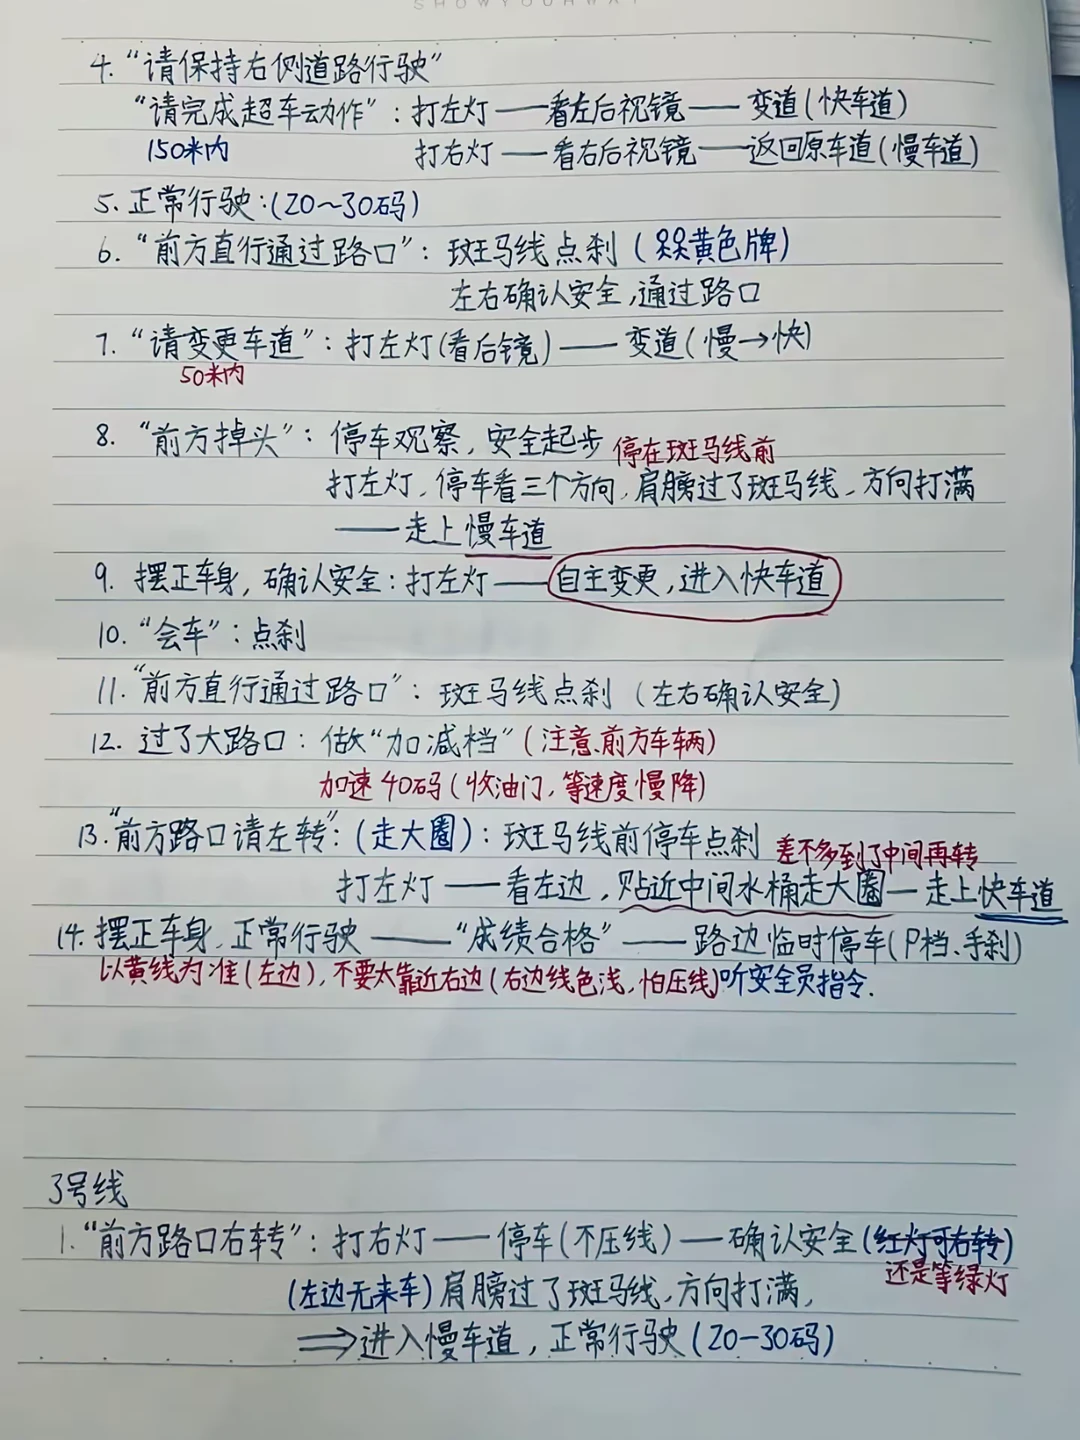 4. “请保持右侧道路行驶”
“请完成超车动作”：打左灯——看左后视镜——变道(快车道)
150米内 打右灯——看右后视镜——返回原车道(慢车道)
5. 正常行驶：(20～30码)
6. “前方直行通过路口”：斑马线点刹(黄色牌)
左右确认安全，通过路口
7. “请变更车道”：打左灯(看后镜)——变道(慢→快)
50米内
8. “前方掉头”：停车观察，安全起步 停在斑马线前
打左灯，停车看三个方向，肩膀过了斑马线，方向打满
——走上慢车道
9. 摆正车身，确认安全：打左灯——自主变更，进入快车道
10. “会车”：点刹
11. “前方直行通过路口”：斑马线点刹(左右确认安全)
12. 过了大路口：做“加减档”(注意、前方车辆)
加速40码(收油门，等速度慢降)
13. “前方路口请左转”：(走大圈)：斑马线前停车点刹 差不多到了中间再转
打左灯——看左边，贴近中间水桶走大圈—走上快车道
14. 摆正车身，正常行驶——“成绩合格”——路边临时停车(P档、手刹)
以黄线为准(左边)，不要太靠近右边(右边线色浅，怕压线)听安全员指令.
3号线
1. “前方路口右转”：打右灯——停车(不压线)—确认安全(红灯可右转)
还是等绿灯
(左边无来车)肩膀过了斑马线，方向打满，
⟹进入慢车道，正常行驶(20-30码)